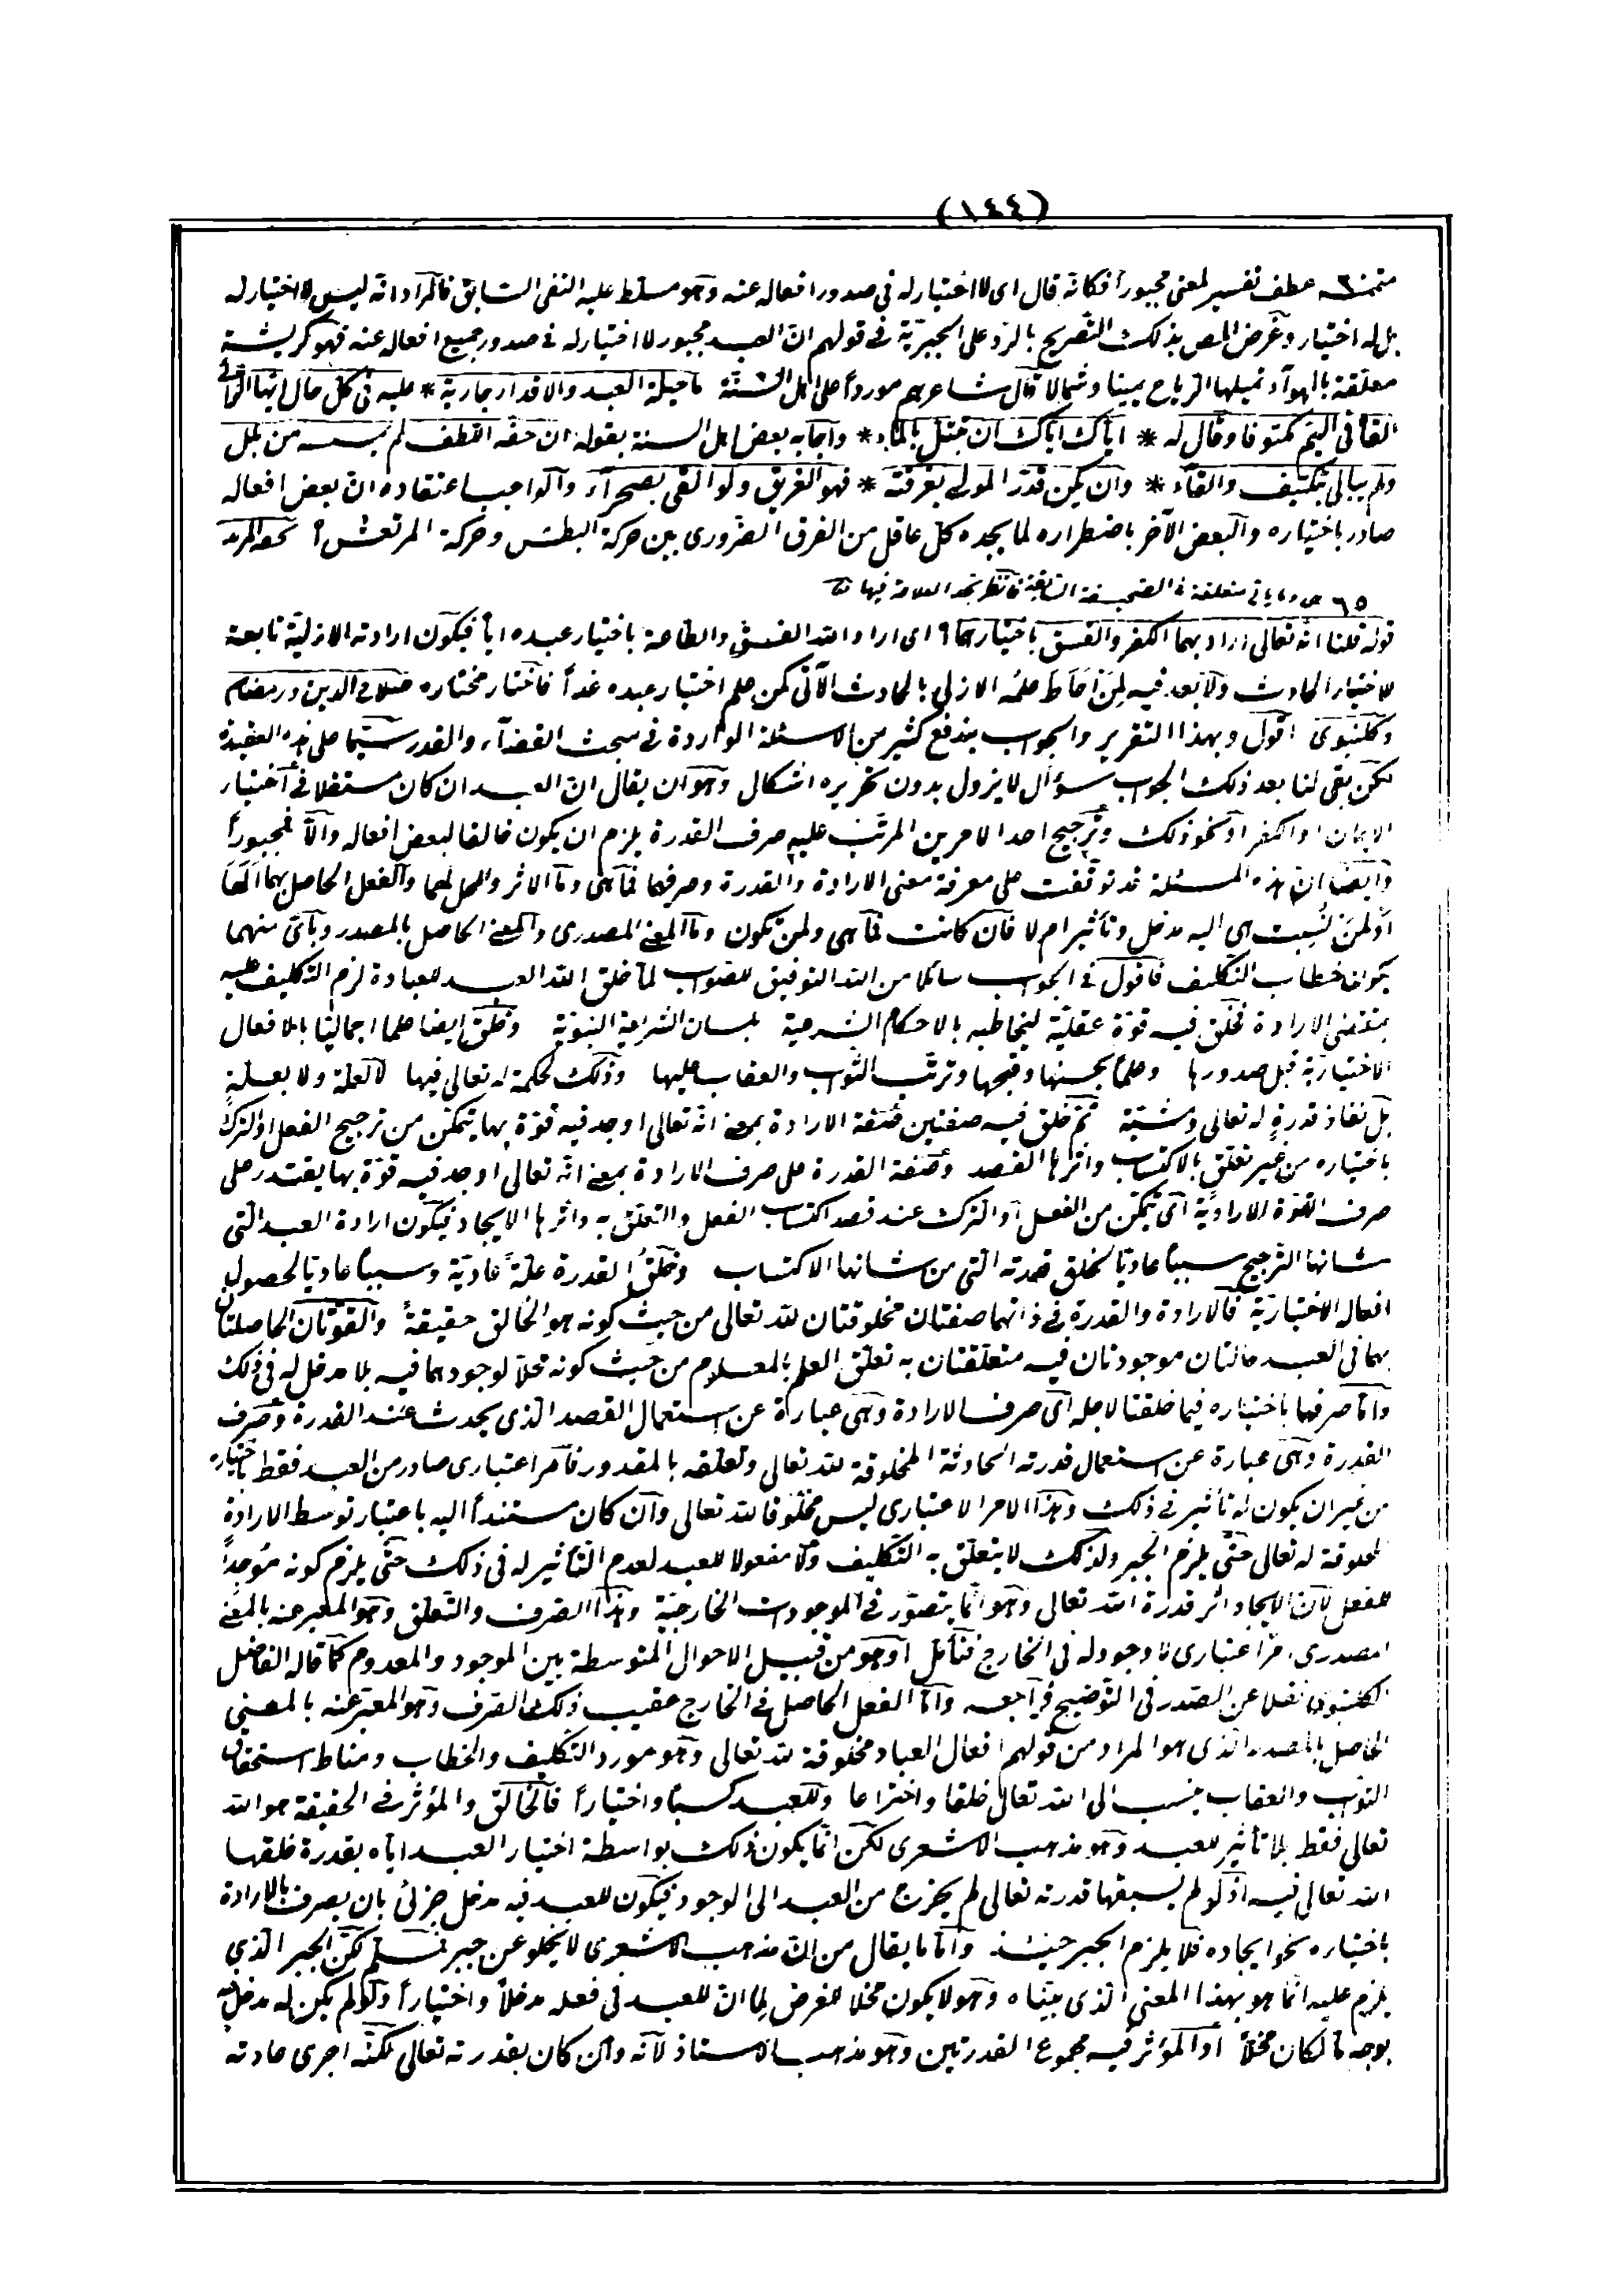 (١٤٤)
عطف تفسير لمعنى مجبوراً فكانه قال اى لا اختيار له فى صدور افعاله عنه وهو مسلط عليه النفى السابق فالمراد انه ليس لا اختيار له
بل له اختيار وغرض المص بذلك التصريح بالرد على الجبرية فى قولهم ان العبد مجبور لا اختيار له فى صدور جميع افعاله عنه فهو كريشة
معلقة بالهوآء تميلها الرياح يمينا وشمالا قال شاعرهم مورداً على اهل السنة ما حيلة العبد والاقدار جارية * عليه فى كل حال ايها الرائى
القاه فى اليم مكتوفا وقال له * اياك اياك ان تبتل بالماء * واجابه بعض اهل السنة بقوله ان حفه اللطف لم يمسه من بلل
ولم يبالى بتكتيف والقآء * وان يكن قدر المولى بغرقته * فهو الغريق ولو القى بصحرآء والواجب اعتقاده ان بعض افعاله
صادر باختياره والبعض الآخر باضطراره لما يجده كل عاقل من الفرق الضرورى بين حركة البطش وحركة المرتعش
٦٥ متعلقة فى الصحيفة فانظر تجد العلامة فيها
قوله قلنا انه تعالى اراد بهما الكفر والفسق باختيارهما اى اراد الله الفسق والطاعة باختيار عبده اياه فيكون ارادته الازلية تابعة
للاختيار الحادث ولا بعد فيه لمن احاط علمه الازلى بالحادث الآتى كمن علم اختيار عبده غداً فاختار مختاره صلاح الدين ورمضان
وكلنبوى اقول وبهذا التقرير والجواب يندفع كثير من الاسئلة الواردة فى مبحث القضآء والقدر سيما على هذه العقيدة
لكن بقى لنا بعد ذلك الجواب سؤال لا يزول بدون تحريره اشكال وهو ان يقال ان العبد ان كان مستقلا فى اختيار
الايمان او الكفر او نحو ذلك وترجيح احد الامرين المرتب عليه صرف القدرة يلزم ان يكون خالقا لبعض افعاله والا فمجبوراً
وايضا ان هذه المسئلة قد توقفت على معرفة معنى الارادة والقدرة وصرفهما فما هى وما الاثر والمحل لهما والفعل الحاصل بهما
او لمن نسبت هى اليه مدخل وتأثير ام لا فان كانت فما هى ولمن تكون وما المعنى المصدرى والمعنى الحاصل بالمصدر وباى منهما
يكون خطاب التكليف فاقول فى الجواب سائلا من الله التوفيق للصواب لما خلق الله العبد للعبادة لزم التكليف عليه
بمقتضى الارادة فخلق فيه قوة عقلية ليخاطبه بالاحكام الشرعية بلسان الشريعة النبوية وخلق ايضا علما اجماليا بالافعال
الاختيارية قبل صدورها وعلما بحسنها وقبحها وترتب الثواب والعقاب عليها وذلك لحكمة له تعالى فيها لا لعلة ولا بعلة
بل نفاذ قدرة له تعالى ومشية ثم خلق فيه صفتين صفة الارادة بمعنى انه تعالى اوجد فيه قوة بها يتمكن من ترجيح الفعل او الترك
باختياره من غير تعلق بالاكتساب واثرها القصد وصفة القدرة على صرف الارادة بمعنى انه تعالى اوجد فيه قوة بها يقتدر على
صرف القوة الارادية اى يتمكن من الفعل او الترك عند قصد اكتساب الفعل والتعلق به واثرها الايجاد فيكون ارادة العبد التى
شانها الترجيح سببا عاديا لخلق قدرته التى من شانها الاكتساب وخلق القدرة علة عادية وسببا عاديا لحصول
افعاله الاختيارية فالارادة والقدرة فى ذاتهما صفتان مخلوقتان لله تعالى من حيث كونه هو الخالق حقيقة والقوتان الحاصلتان
بهما فى العبد حالتان موجودتان فيه متعلقتان به تعلق العلم بالمعلوم من حيث كونه محلا لوجودهما فيه بلا مدخل له فى ذلك
واما صرفهما باختياره فيما خلقتا لاجله اى صرف الارادة وهى عبارة عن استعمال القصد الذى يحدث عند القدرة وصرف
القدرة وهى عبارة عن استعمال قدرته الحادثة المخلوقة لله تعالى وتعلقه بالمقدور فامر اعتبارى صادر من العبد فقط باختياره
من غير ان يكون له تأثير فى ذلك وهذا الامر الاعتبارى ليس مخلوقا لله تعالى وان كان مستندا اليه باعتبار توسط الارادة
المخلوقة له تعالى حتى يلزم الجبر ولذلك لا يتعلق به التكليف ولا مفعولا للعبد لعدم التأثير له فى ذلك حتى يلزم كونه موجداً
للفعل لان الايجاد اثر قدرة الله تعالى وهو انما يتصور فى الموجودات الخارجية وهذا الصرف والتعلق وهو المعبر عنه بالمعنى
المصدرى امر اعتبارى لا وجود له فى الخارج فتأمل او هو من قبيل الاحوال المتوسطة بين الموجود والمعدوم كما قاله الفاضل
الكلنبوى نقلا عن الصدر فى التوضيح فراجعه واما الفعل الحاصل فى الخارج عقيب ذلك الصرف وهو المعبر عنه بالمعنى
الحاصل بالمصدر الذى هو المراد من قولهم افعال العباد مخلوقة لله تعالى وهو مورد التكليف والخطاب ومناط استحقاق
الثواب والعقاب ينسب الى الله تعالى خلقا واختراعا وللعبد كسبا واختياراً فالخالق والمؤثر فى الحقيقة هو الله
تعالى فقط بلا تأثير للعبد وهو مذهب الاشعرى لكن انما يكون ذلك بواسطة اختيار العبد اياه بقدرة خلقها
الله تعالى فيه اذ لو لم يسبقها قدرته تعالى لم يخرج من العبد الى الوجود فيكون للعبد فيه مدخل جزئى بان يصرف الارادة
باختياره نحو ايجاده فلا يلزم الجبر حينئذ واما ما يقال من ان مذهب الاشعرى لا يخلو عن جبر فمسلم لكن الجبر الذى
يلزم عليه انما هو بهذا المعنى الذى بيناه وهو لا يكون مخلا للغرض لما ان للعبد فى فعله مدخلا واختياراً ولو لم يكن له مدخل فيه
بوجه ما لكان مخلا او المؤثر فيه مجموع القدرتين وهو مذهب الاستاذ لانه وان كان بقدرته تعالى لكنه اجرى عادته